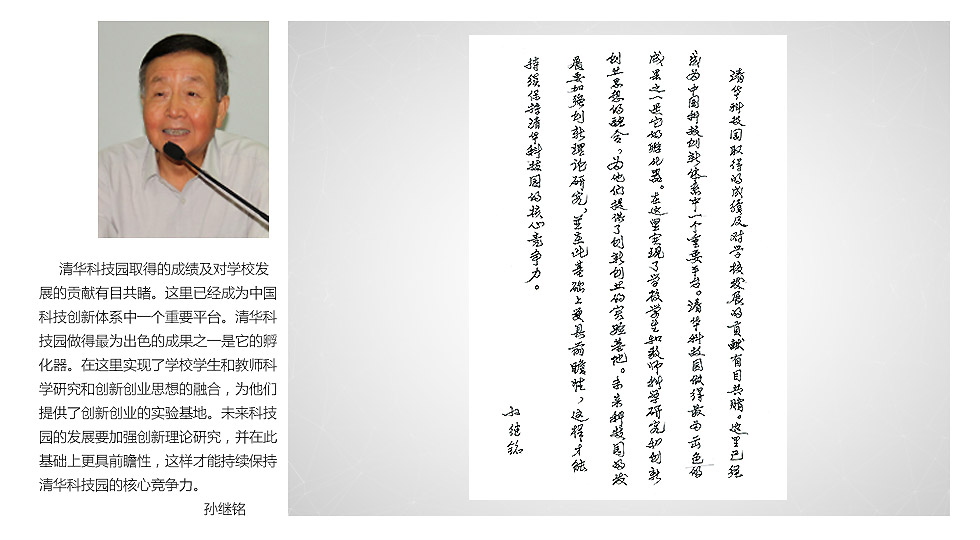 清华科技园取得的成绩及对学校发
展的贡献有目共睹。这里已经成为中国
科技创新体系中一个重要平台。清华科
技园做得最为出色的成果之一是它的孵
化器。在这里实现了学校学生和教师科
学研究和创新创业思想的融合，为他们
提供了创新创业的实验基地。未来科技
园的发展要加强创新理论研究，并在此
基础上更具前瞻性，这样才能持续保持
清华科技园的核心竞争力。
孙继铭
清华科技园取得的成绩及对学校发展的贡献有目共睹。这里已经
成为中国科技创新体系中一个重要平台。清华科技园做得最为出色的
成果之一是它的孵化器。在这里实现了学校学生和教师科学研究和创新
创业思想的融合，为他们提供了创新创业的实验基地。未来科技园的发
展要加强创新理论研究，并在此基础上更具前瞻性，这样才能
持续保持清华科技园的核心竞争力。
孙继铭